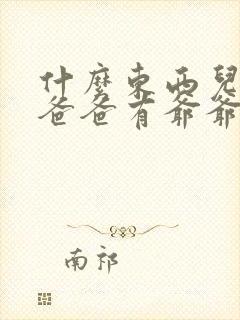 什麼東西兒
爸爸有爺爺
南祁